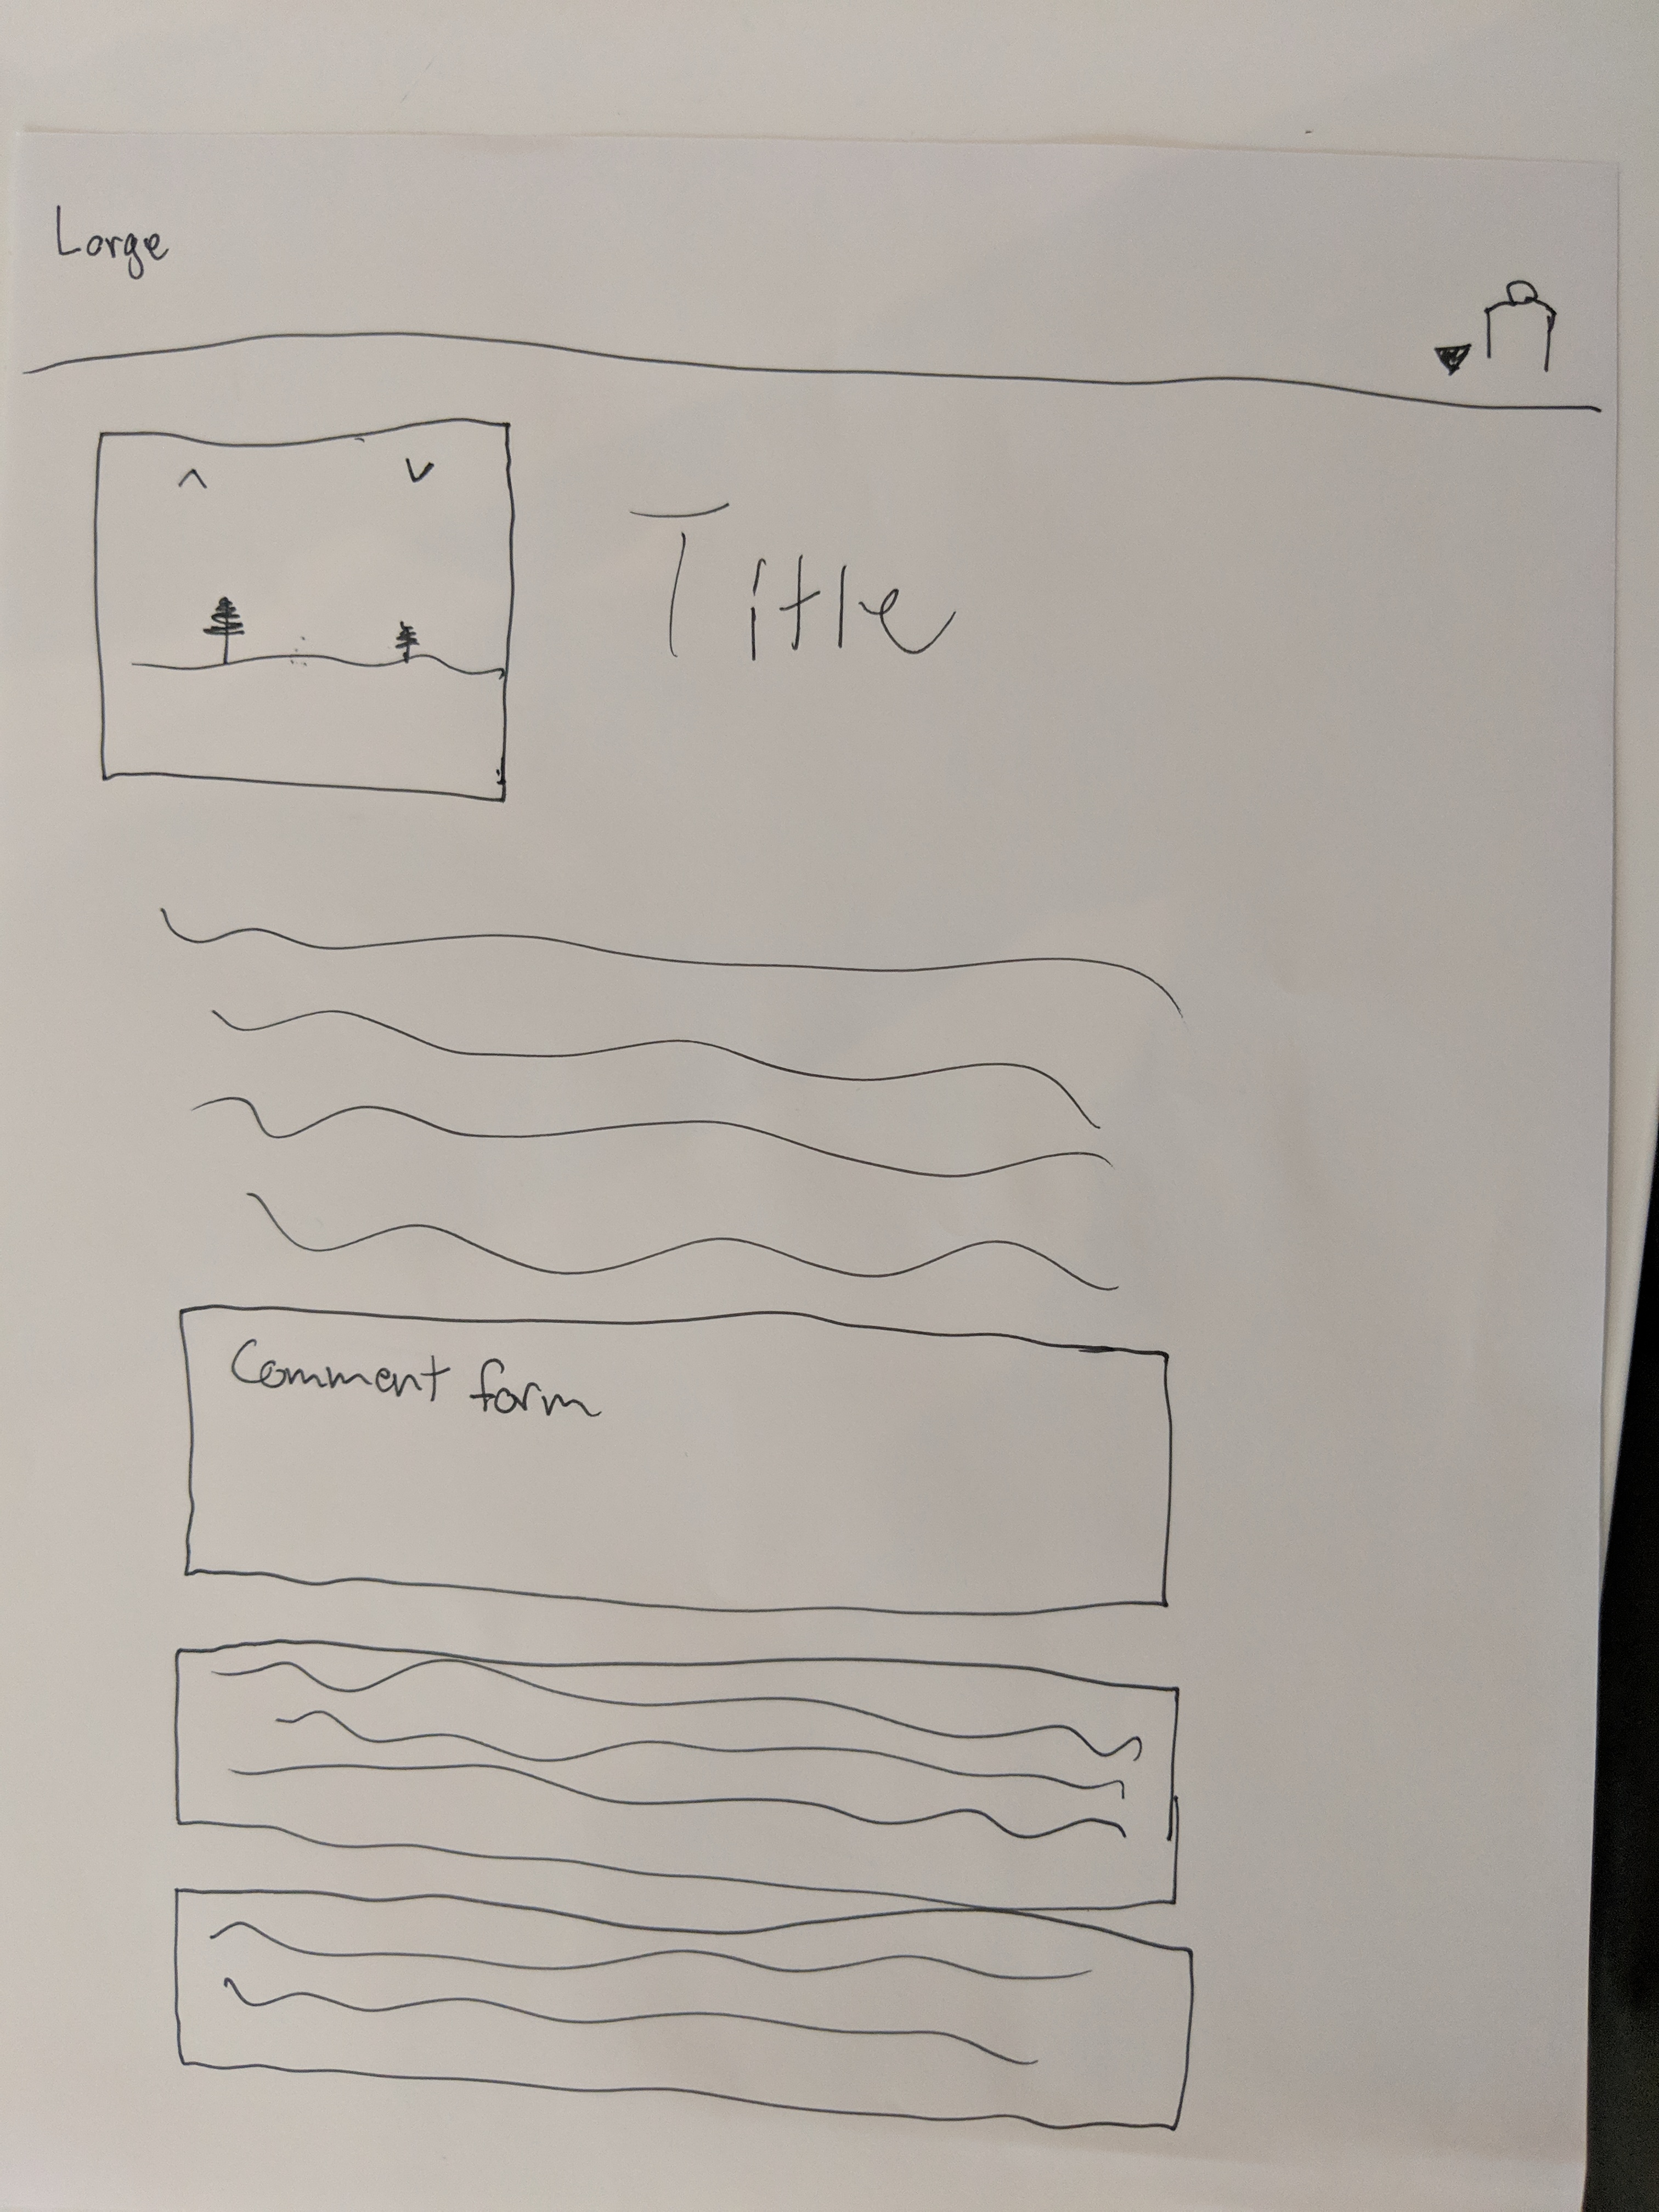 Large
Title
Comment form